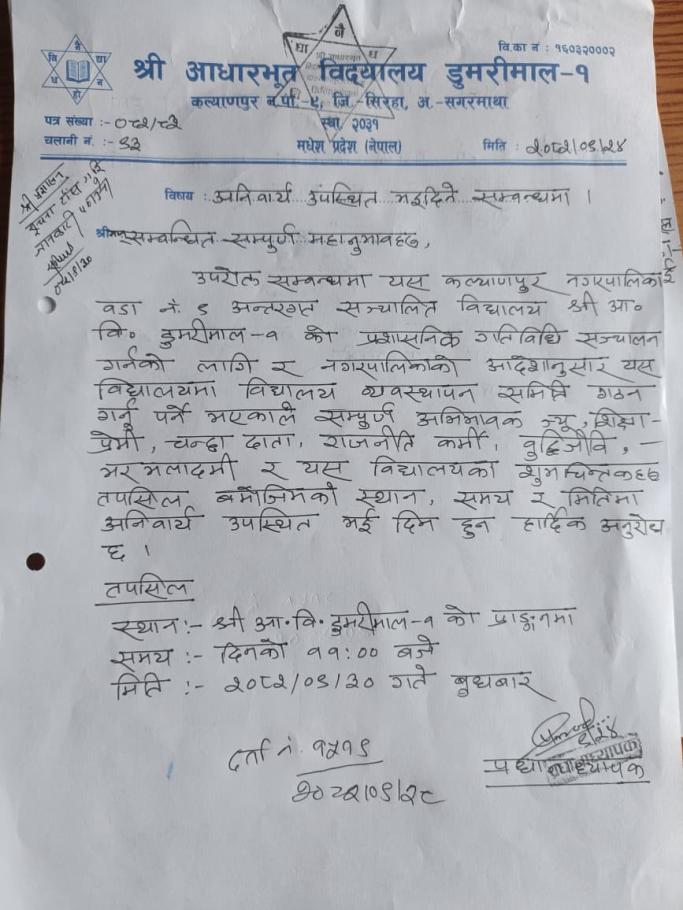 वि.का नं : १६०३२०००२
श्री आधारभूत विद्यालय डुमरीमाल-१
कल्याणपुर न.पा.-९, जि.-सिरहा, अ.-सगरमाथा
पत्र संख्या :- ०८२/८३
स्था. २०३१
चलानी नं. :- ९३
मधेश प्रदेश (नेपाल)
मिति : २०८२/०९/२४
विषय : अनिवार्य उपस्थित भइदिने सम्बन्धमा ।
श्रीमान् सम्बन्धित सम्पूर्ण महानुभावहरू,
उपरोक्त सम्बन्धमा यस कल्याणपुर नगरपालिका
वडा नं. ९ अन्तरगत सञ्चालित विद्यालय श्री आ.
वि. डुमरीमाल-१ को प्रशासनिक गतिविधि सञ्चालन
गर्नको लागि र नगरपालिकाको आदेशानुसार यस
विद्यालयमा विद्यालय व्यवस्थापन समिति गठन
गर्नु पर्ने भएकाले सम्पूर्ण अभिभावक ज्यू, शिक्षा-
प्रेमी, चन्दा दाता, राजनीति कर्मी, वुद्धिजीवि,-
भर भलादमी र यस विद्यालयका शुभचिन्तकहरू
तपसिल बमोजिमको स्थान, समय र मितिमा
अनिवार्य उपस्थित भई दिन हुन हार्दिक अनुरोध
छ ।
तपसिल
स्थान :- श्री आ.वि. डुमरीमाल-१ को प्राङ्गनमा
समय :- दिनको ११:०० बजे
मिति :- २०८२/०९/३० गते बुधबार
दर्ता नं. १५१९
२०८२।०९।२८
९/२४
प्रधानाध्यापक